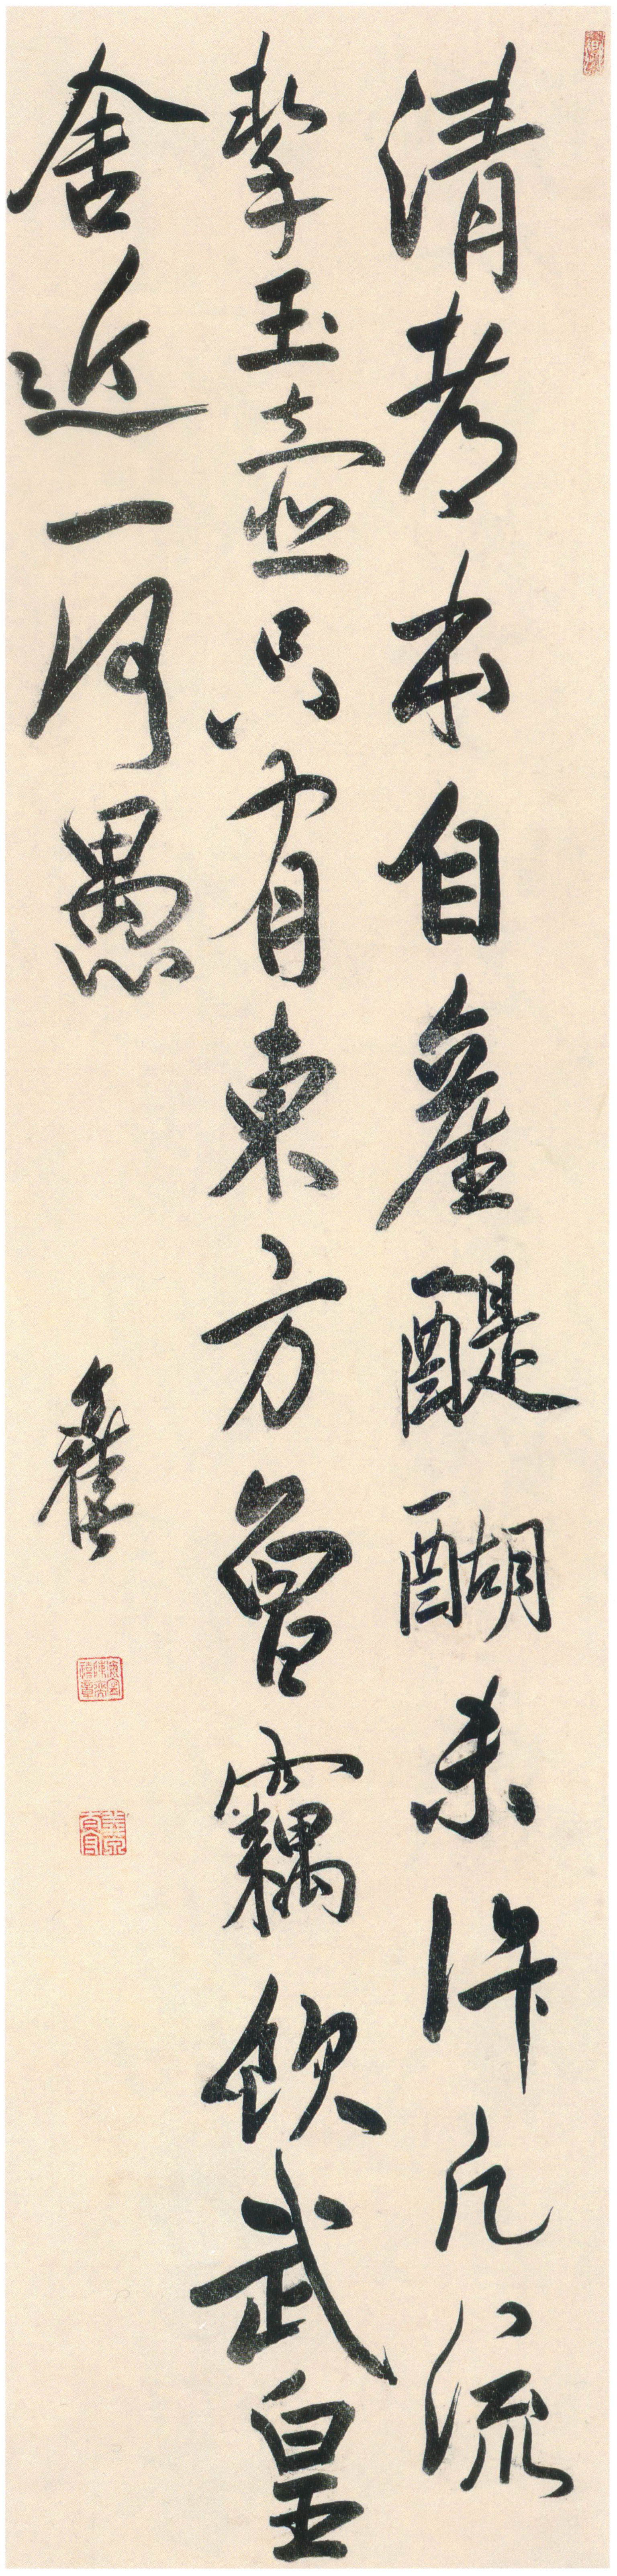 清都本自產醍醐未許凡流
挈玉壺只有東方曾竊飲武皇
舍近一何愚
奕禧